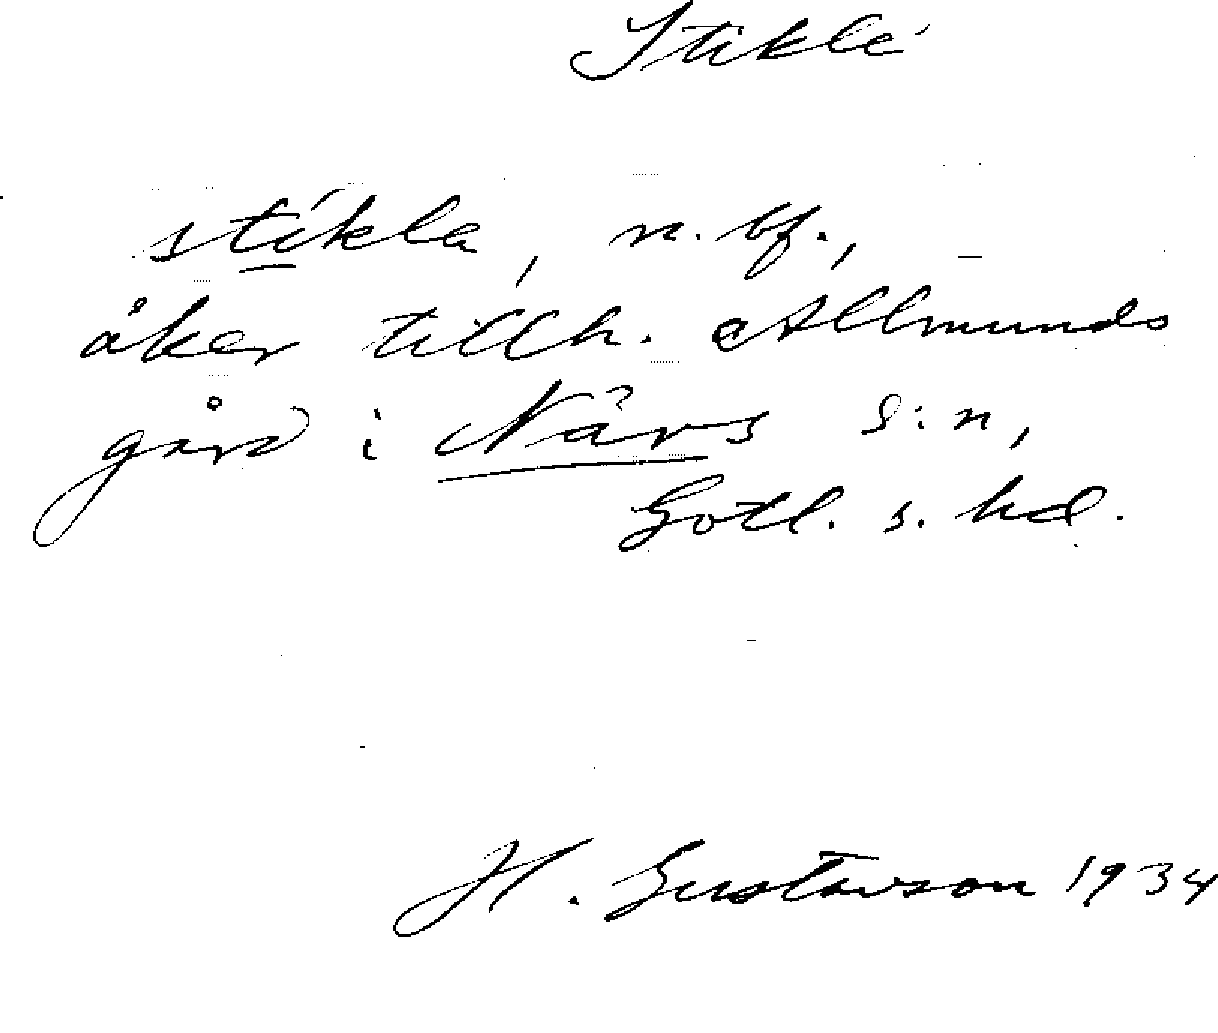 Stikle
stikla, n. bf., –
åker tillh. Allmunds
gård i När s:n,
Gotl. s. hd.
H. Gustavson 1934